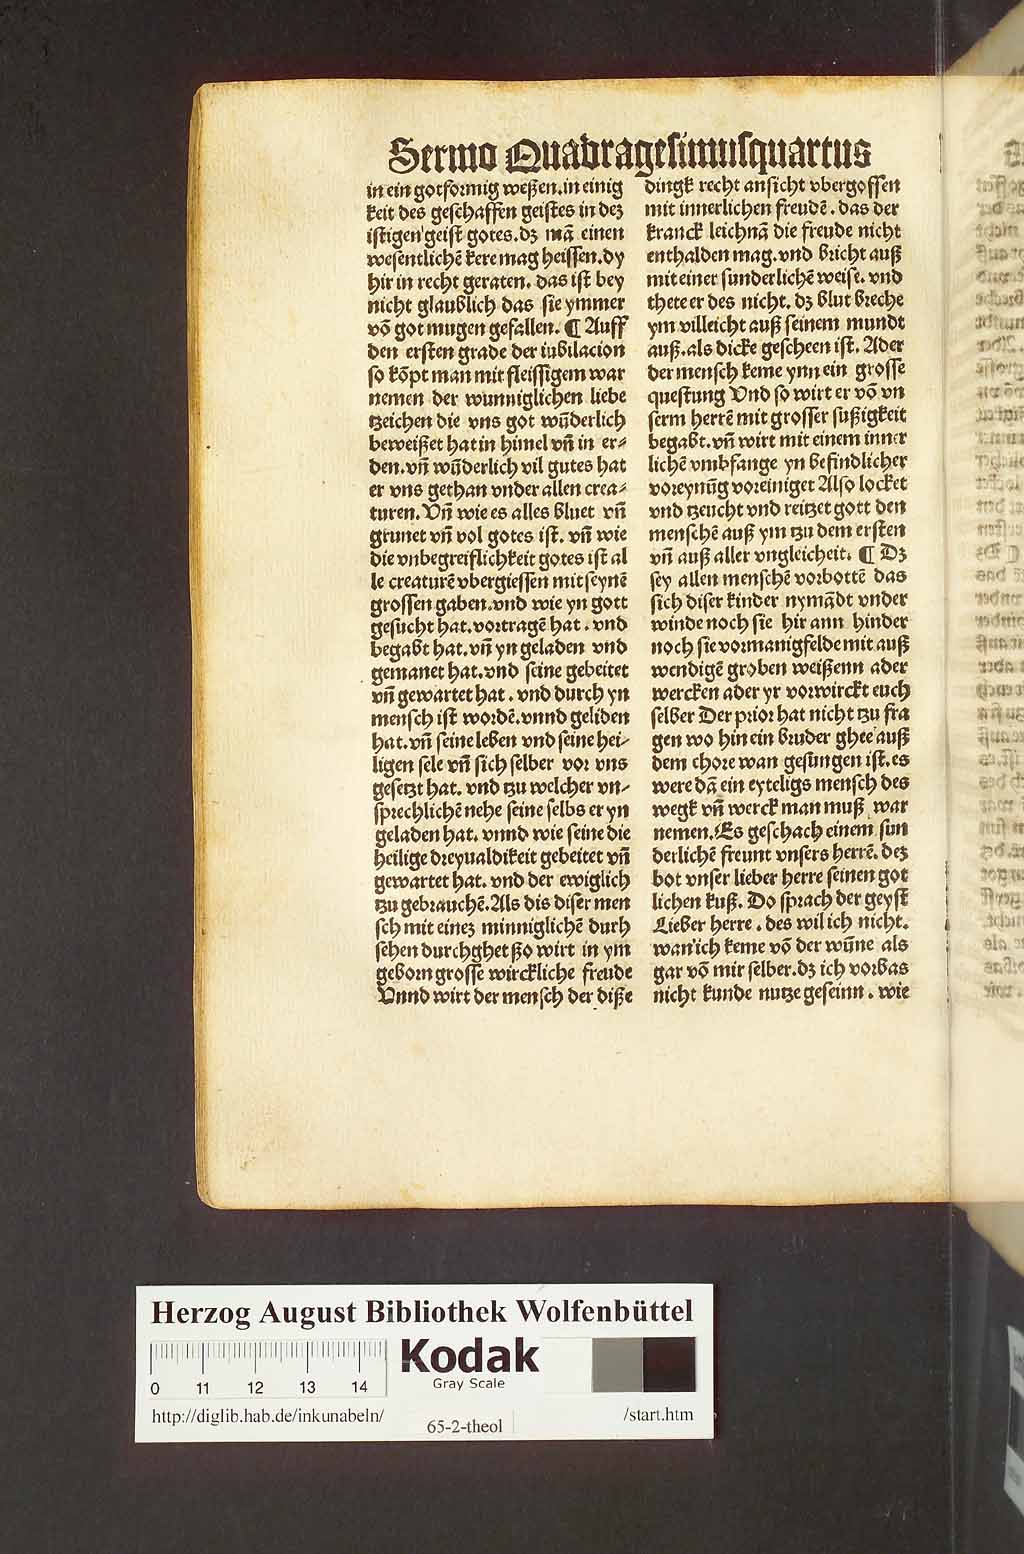 Sermo Quadragesimusquartus
in ein gotformig weßen.in einig
keit des geschaffen geistes in dez
istigen geist gotes.dz mā einen
wesentlichē kere mag heissen.dy
hir in recht geraten. das ist bey
nicht glaublich das sie ymmer
vō got mugen gefallen. ¶ Auff
den ersten grade der iubilacion
so kōpt man mit fleissigem war
nemen der wunniglichen liebe
tzeichen die vns got wūderlich
beweißet hat in himel vñ in er⸗
den.vñ wūderlich vil gutes hat
er vns gethan vnder allen crea⸗
turen. Vñ wie es alles bluet vñ
grunet vñ vol gotes ist. vñ wie
die vnbegreiflichkeit gotes ist al
le creaturē vbergiessen mit seynē
grossen gaben.vnd wie yn gott
gesucht hat.vortragē hat. vnd
begabt hat.vñ yn geladen vnd
gemanet hat.vnd seine gebeitet
vñ gewartet hat. vnd durch yn
mensch ist wordē.vnnd geliden
hat.vñ seine leben vnd seine hei⸗
ligen sele vñ sich selber vor vns
gesetzt hat. vnd tzu welcher vn⸗
sprechlichē nehe seine selbs er yn
geladen hat. vnnd wie seine die
heilige dreyualdikeit gebeitet vñ
gewartet hat. vnd der ewiglich
tzu gebrauchē.Als dis diser men
sch mit einez minniglichē durh
sehen durchghet ßo wirt in ym
geborn grosse wirckliche freude
Vnnd wirt der mensch der diße
dingk recht ansicht vbergossen
mit innerlichen freudē. das der
kranck leichnā die freude nicht
enthalden mag.vnd bricht auß
mit einer sunderlichē weise. vnd
thete er des nicht. dz blut breche
ym villeicht auß seinem mundt
auß.als dicke gescheen ist. Ader
der mensch keme ynn ein grosse
questung Vnd so wirt er vō vn
serm herrē mit grosser sußigkeit
begabt.vñ wirt mit einem inner
lichē vmbfange yn befindlicher
voreynūg voreiniget Also locket
vnd tzeucht vnd reitzet gott den
menschē auß ym tzu dem ersten
vñ auß aller vngleicheit. ¶ Dz
sey allen menschē vorbottē das
sich diser kinder nymādt vnder
winde noch sie hir ann hinder
noch sie vormanigfelde mit auß
wendigē groben weißenn ader
wercken ader yr vorwirckt euch
selber Der prior hat nicht tzu fra
gen wo hin ein bruder ghee auß
dem chore wan gesungen ist.es
were dā ein eyteligs mensch des
wegk vñ werck man muß war
nemen.Es geschach einem sun
derlichē freunt vnsers herrē. dez
bot vnser lieber herre seinen got
lichen kuß. Do sprach der geyst
Lieber herre. des wil ich nicht.
wan ich keme vō der wūne als
gar vō mir selber.dz ich vorbas
nicht kunde nutze geseinn. wie
Herzog August Bibliothek Wolfenbüttel
0 11 12 13 14
Kodak
Gray Scale
http://diglib.hab.de/inkunabeln/
65-2-theol
/start.htm